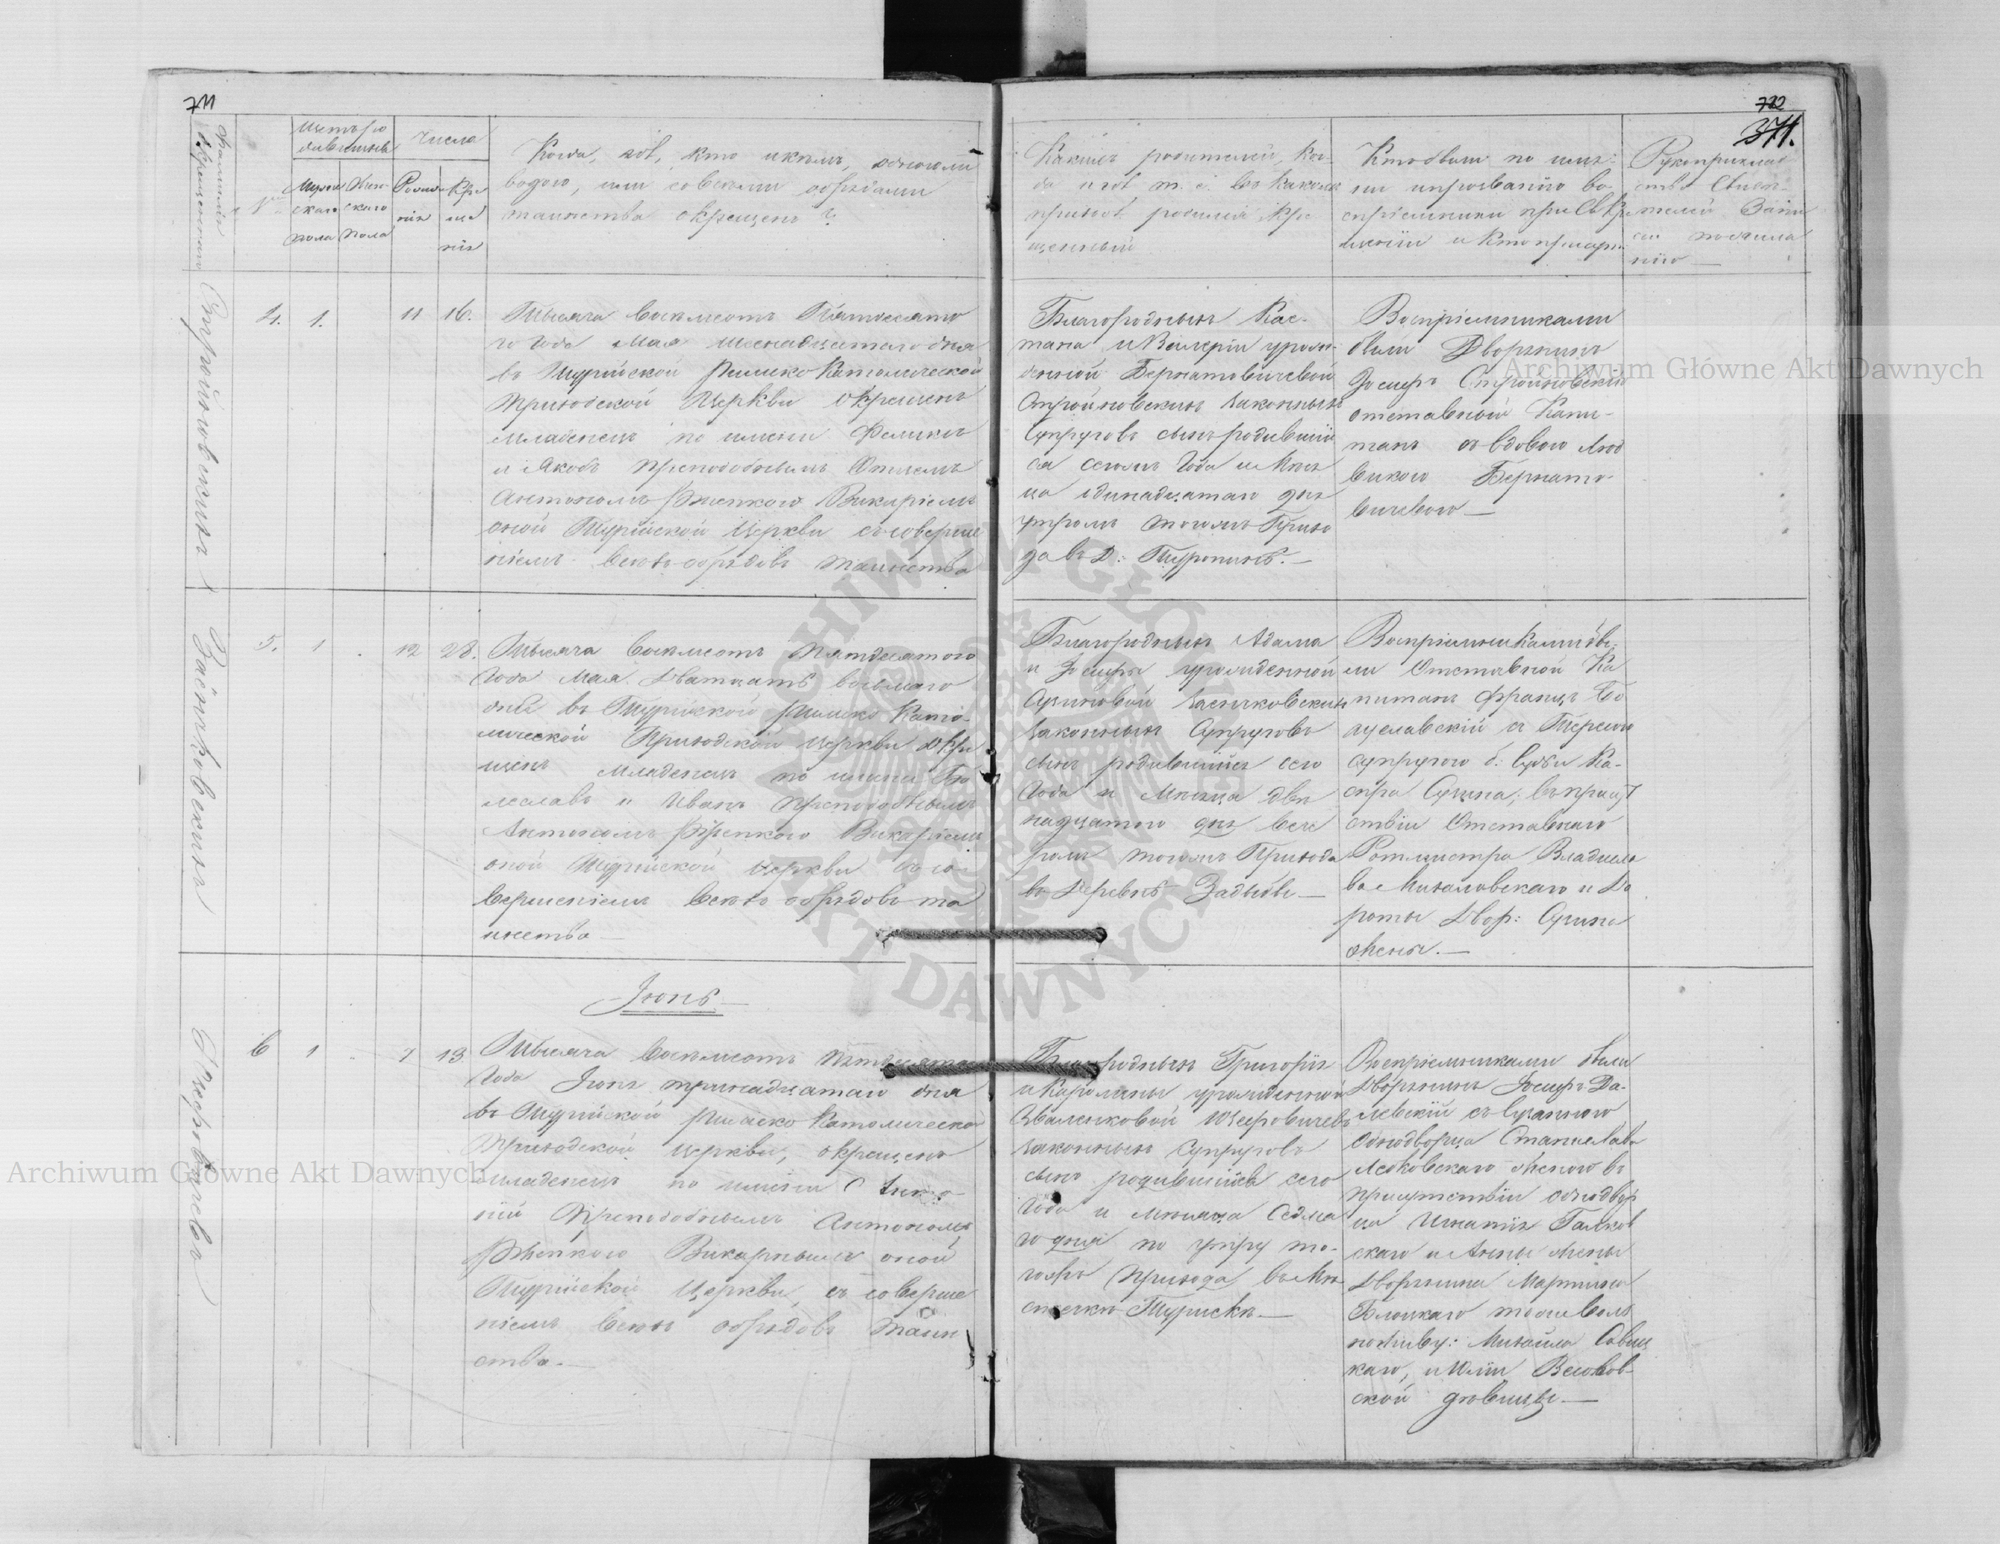 711
722
371.
Фамилія окрещеннаго
№
Щетъ родившихся
Мужескаго пола
Женскаго пола
Числа
Рожденія
Крещенія
Когда, гдѣ, кто и кѣмъ, одною ли
водою, или со всѣми обрядами
таинства окрещенъ?
Какихъ родителей, ког-
да и гдѣ т. е. въ какомъ
приходѣ родился кре
щенный
Кто были по име-
ни и прозванію во-
спріемники при Св. Кре
щеніи и кто присут
Рукоприклад
ство
Стройновскихъ
4. 1. 11 16.
Тысяча восемсотъ Пятьдесято
го года Мая шеснадцатаго дня
въ Турійской Римско Католической
Приходской Церкви окрещенъ
младенецъ по имени Феликсъ
и Якобъ преподобнымъ Отцемъ
Антономъ Ржепкого Викаріемъ
оной Турійской Церкви съ соверше
ніемъ всѣхъ обрядовъ таинства
Благородныхъ Кае-
тана и Валеріи урож-
денной Бернатовичевой
Стройновскихъ законныхъ
супруговъ сынъ родивший
ся сего года и мѣся
ца одинадцатаго дня
утромъ того жъ Прихо
да въ Д: Туропинѣ.—
Воспріемниками
были Дворянинъ
Іосифъ Стройновскій
отставной Капи-
танъ съ вдовою Люд
викою Бернато-
вичевою—
Заіончковскихъ
5. 1 . 12 28.
Тысяча восемсотъ пятдесятого
года Мая двадцать восьмаго
дня въ Турійской Римско Като-
лической Приходской Церкви окре
щенъ младенецъ по имени Бо
леславъ и Иванъ преподобнымъ
Антономъ Ржепкого Викаріемъ
оной Турійской Церкви съ со-
вершеніемъ всѣхъ обрядовъ та
инства—
Благородныхъ Адама
и Іосифы урожденной
законныхъ Супруговъ
сынъ родившійся сего
года и Мѣсяца два
надцатого дня вече
ромъ того жъ Прихода
въ деревнѣ Задыбы—
Воспріемниками бы
ли Отставной Ка
питанъ Францъ Бо
гуславскій съ Терезою
супругою б. Судьи Ка-
спра Сущина, въ присут
ствіи Отставнаго
Ротмистра Владисла
ва Михаловскаго и До
роты Двор: Сущина
жены.—
—Іюнь—
6 1 . 7 13
Тысяча восемсотъ пятдесятаго
года Іюня тринадцатаго дня
въ Турійской Римско Католической
Приходской Церкви, окрещенъ
младенецъ по имени Анто-
ній Преподобнымъ Антономъ
Ржепкого Викарнымъ оной
Турійской Церкви, съ соверше
ніемъ всѣхъ обрядовъ Таин
ства.—
Благородныхъ Григорія
и Каролины урожденной
законныхъ супруговъ
сынъ родившійся сего
года и мѣсяца седма
го дня по утру то-
гожъ прихода въ Мѣ
стечкѣ Турискѣ—
Воспріемниками были
Дворянинъ Іосифъ Да-
левскій съ Сузанною
однодворца Станислава
Лесковскаго женою въ
присутствіи однодвор
ца Игнатія Галков
скаго и Анны жены
Дворянина Мартина
Михаила Савиц
каго, и Юліи
ской дѣвицы—
Archiwum Główne Akt Dawnych
Archiwum Główne Akt Dawnych
ARCHIWUM GŁÓWNE AKT DAWNYCH